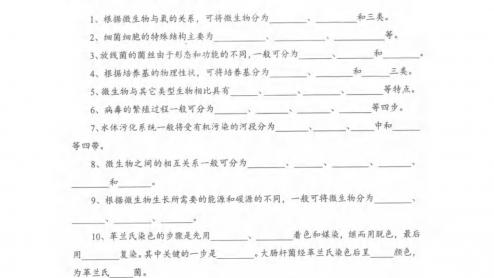 1、根据微生物与氧的关系,可将微生物分为______、______和三类。
2、细菌细胞的特殊结构主要为______、______、______、______等。
3、放线菌的菌丝由于形态和功能的不同,一般可分为______、______和______。
4、根据培养基的物理性状,可将培养基分为______、______和______三类。
5、微生物与其它类型生物相比具有______、______、______、______等特点。
6、病毒的繁殖过程一般可分为______、______、______、______等四步。
7、水体污化系统一般将受有机污染的河段分为______、______、______中和______
等四带。
8、微生物之间的相互关系一般可分为______、______、______、______、
______和______。
9、根据微生物生长所需要的能源和碳源的不同,一般可将微生物分为______、
______、______、______。
10、革兰氏染色的步骤是先用______、______着色和媒染,继而用脱色,最后
用______复染。其中关键的一步是______。大肠杆菌经革兰氏染色后呈____颜色,
为革兰氏____菌。